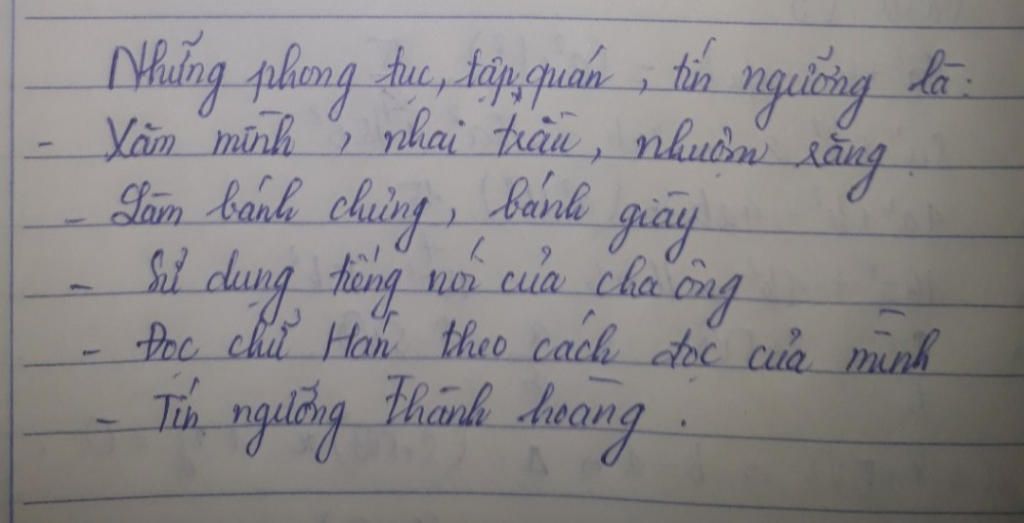 Những phong tục, tập quán, tín ngưỡng là:
- Xăm mình, nhai trầu, nhuộm răng
- Làm bánh chưng, bánh giầy
- Sử dụng tiếng nói của cha ông
- Đọc chữ Hán theo cách đọc của mình
- Tín ngưỡng Thành hoàng.